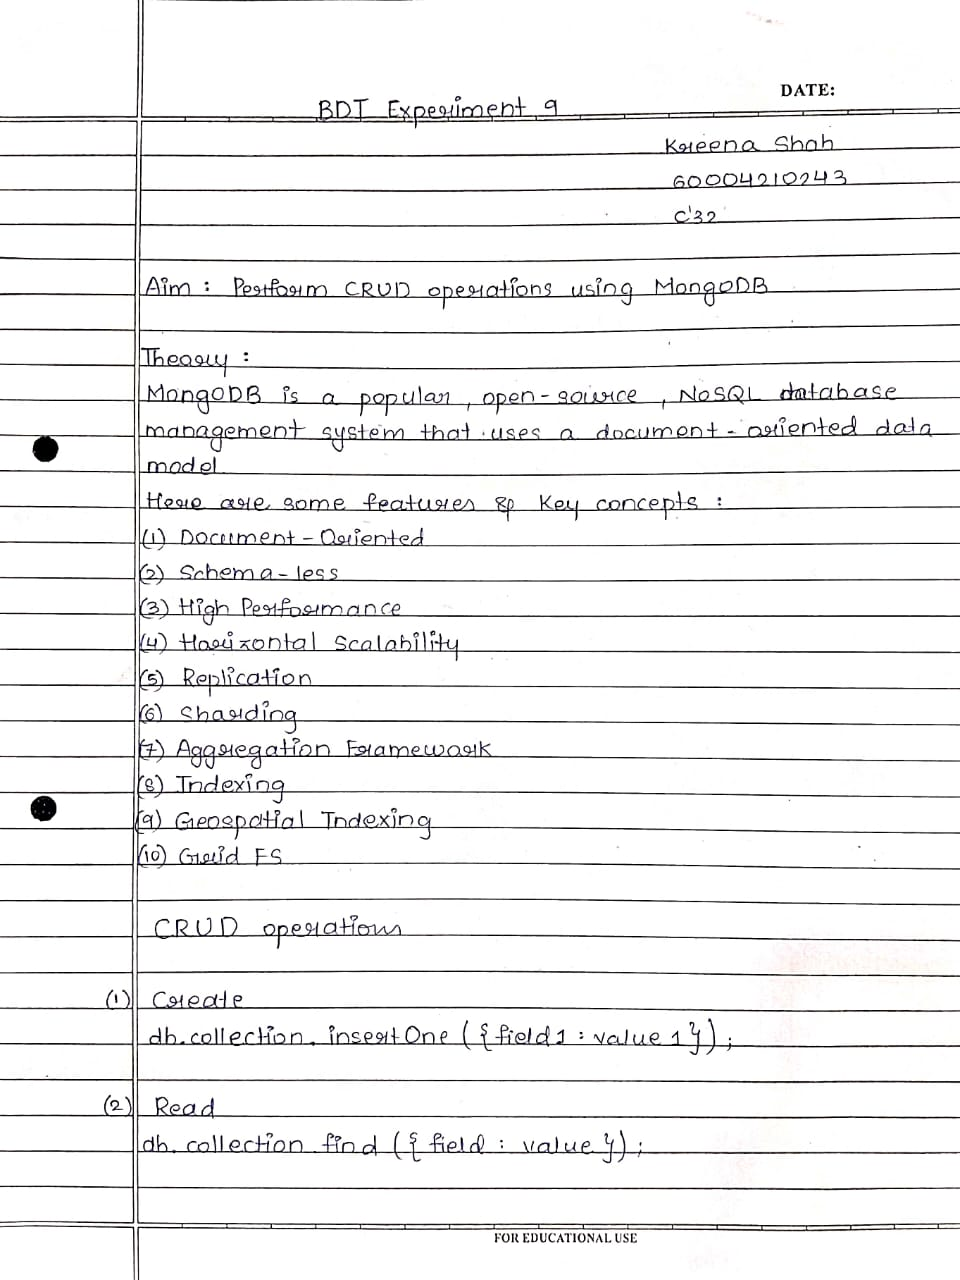 DATE:
BDT Experiment 9
Kreena Shah
60004210243
C'32
Aim : Perform CRUD operations using MongoDB
Theory :
MongoDB is a popular, open-source, NoSQL database
management system that uses a document-oriented data
model
Here are some features & Key concepts :
(1) Document-Oriented
(2) Schema-less
(3) High Performance
(4) Horizontal Scalability
(5) Replication
(6) Sharding
(7) Aggregation Framework
(8) Indexing
(9) Geospatial Indexing
(10) Grid FS
CRUD operations
(1) Create
db.collection.insertOne ({field1 : value 1});
(2) Read
db.collection find ({field : value});
FOR EDUCATIONAL USE